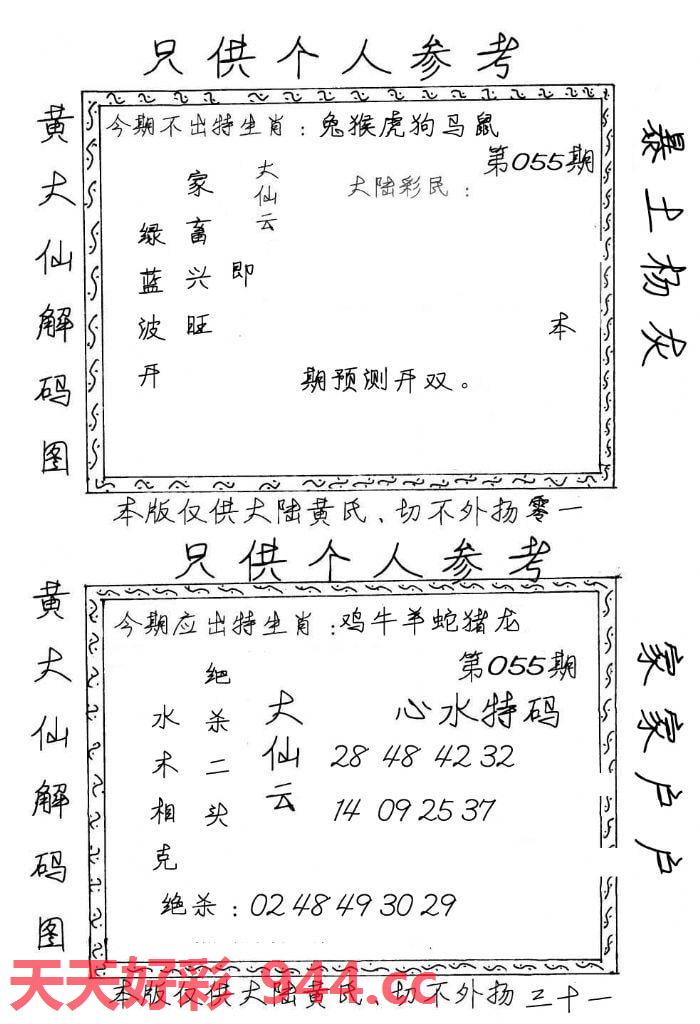 只供个人参考
黄大仙解码图
今期不出特生肖：兔猴虎狗马鼠
第055期
大陆彩民：
大仙云
家畜兴旺
即
绿蓝波开
本
期预测开双。
暴土杨灰
本版仅供大陆黄氏、切不外扬零一
只供个人参考
黄大仙解码图
今期应出特生肖：鸡牛羊蛇猪龙
第055期
心水特码
大仙云
绝杀二头
水木相克
28 48 42 32
14 09 25 37
绝杀：02 48 49 30 29
家家户户
天天好彩 944.cc
本版仅供大陆黄氏、切不外扬三十一